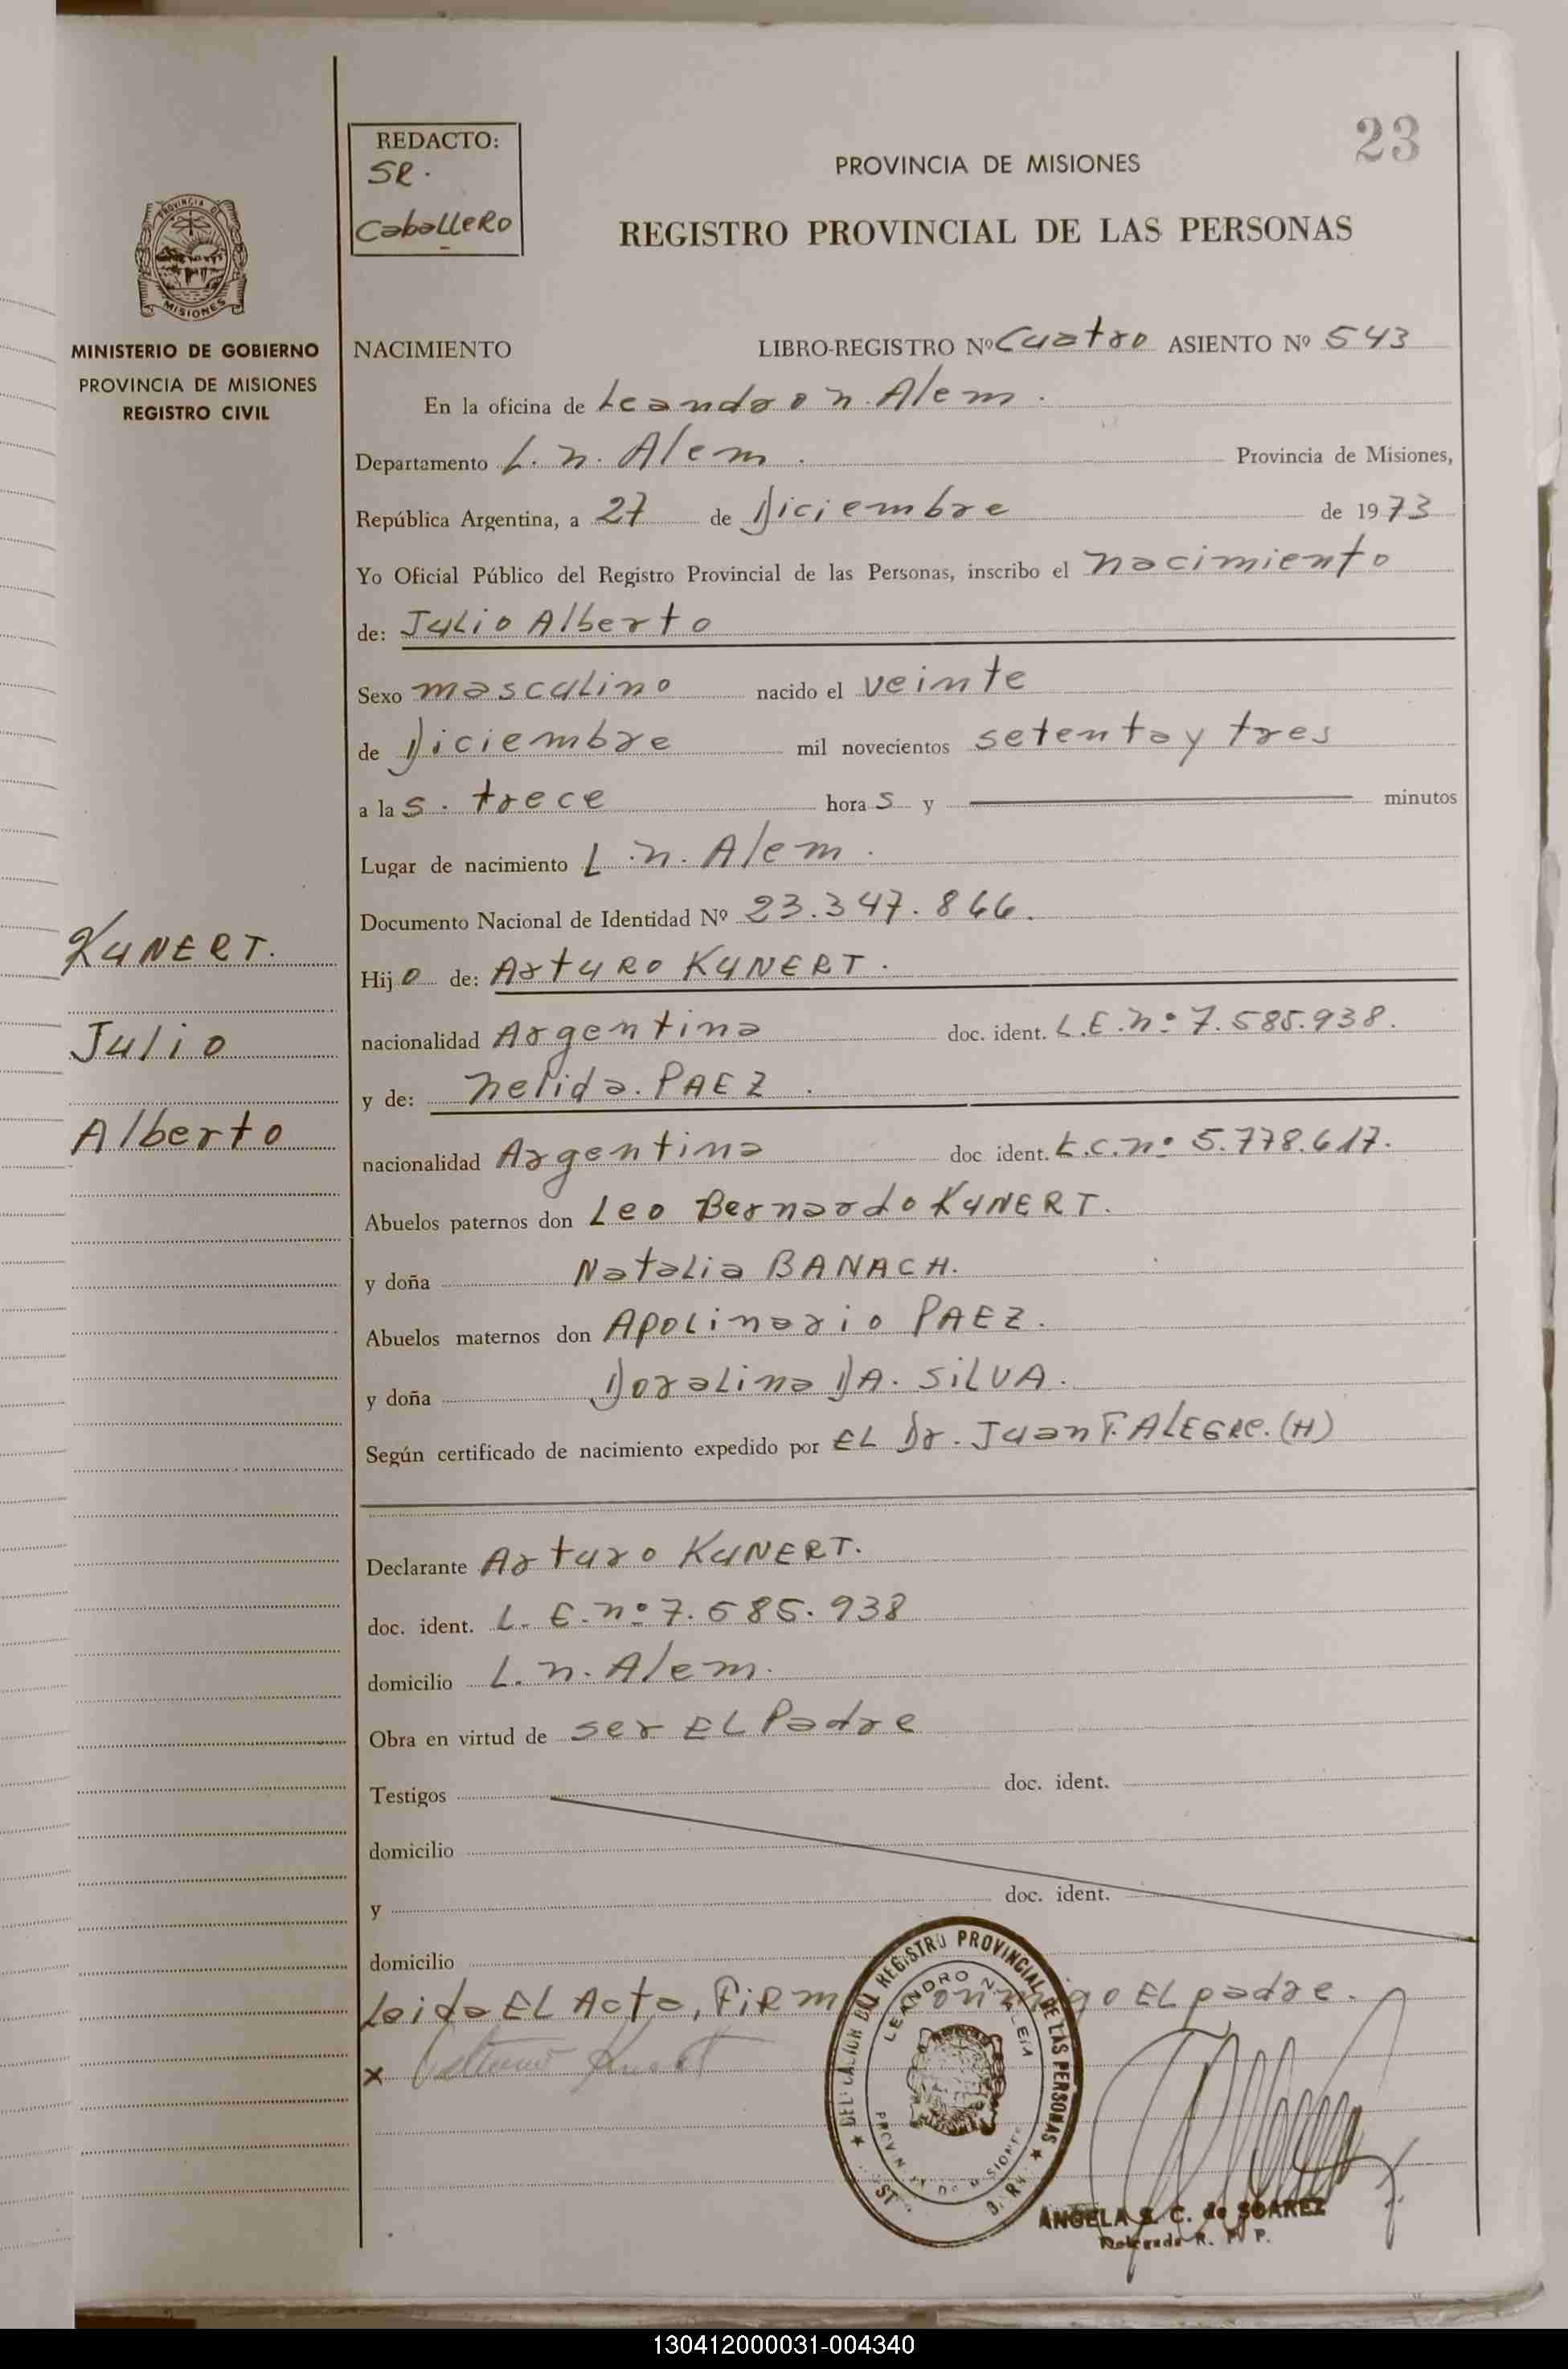 23
REDACTO:
SR.
Caballero
PROVINCIA DE MISIONES
REGISTRO PROVINCIAL DE LAS PERSONAS
PROVINCIA DE
MISIONES
MINISTERIO DE GOBIERNO
PROVINCIA DE MISIONES
REGISTRO CIVIL
NACIMIENTO LIBRO-REGISTRO Nº Cuatro ASIENTO Nº 543
En la oficina de Leandro n. Alem.
Departamento L. n. Alem. Provincia de Misiones,
República Argentina, a 27 de Diciembre de 1973
Yo Oficial Público del Registro Provincial de las Personas, inscribo el nacimiento
de: Julio Alberto
Sexo masculino nacido el veinte
de Diciembre mil novecientos setenta y tres
a las. trece horas y minutos
Lugar de nacimiento L. n. Alem.
Documento Nacional de Identidad Nº 23.347.866.
KUNERT.
Julio
Alberto
Hijo de: Arturo KUNERT.
nacionalidad Argentina doc. ident. L.E.nº 7.585.938.
y de: nelida. PAEZ.
nacionalidad Argentina doc ident. L.C.nº 5.778.617.
Abuelos paternos don Leo Bernardo KUNERT.
y doña Natalia BANACH.
Abuelos maternos don Apolinario PAEZ.
y doña Doralina DA. SILVA.
Según certificado de nacimiento expedido por EL Dr. Juan F. ALEGRe. (H)
Declarante Arturo KUNERT.
doc. ident. L. E. nº 7.585.938
domicilio L. n. Alem.
Obra en virtud de ser EL Padre
Testigos doc. ident.
domicilio
y doc. ident.
domicilio
Leida EL Acta, FiRma conmigo EL padre.
x Arturo Kunert
DELEGACION DEL REGISTRO PROVINCIAL DE LAS PERSONAS
LEANDRO N. ALEM
PROVINCIA DE MISIONES
ANGELA S. C. de SOAREZ
Delegada R. P. P.
130412000031-004340